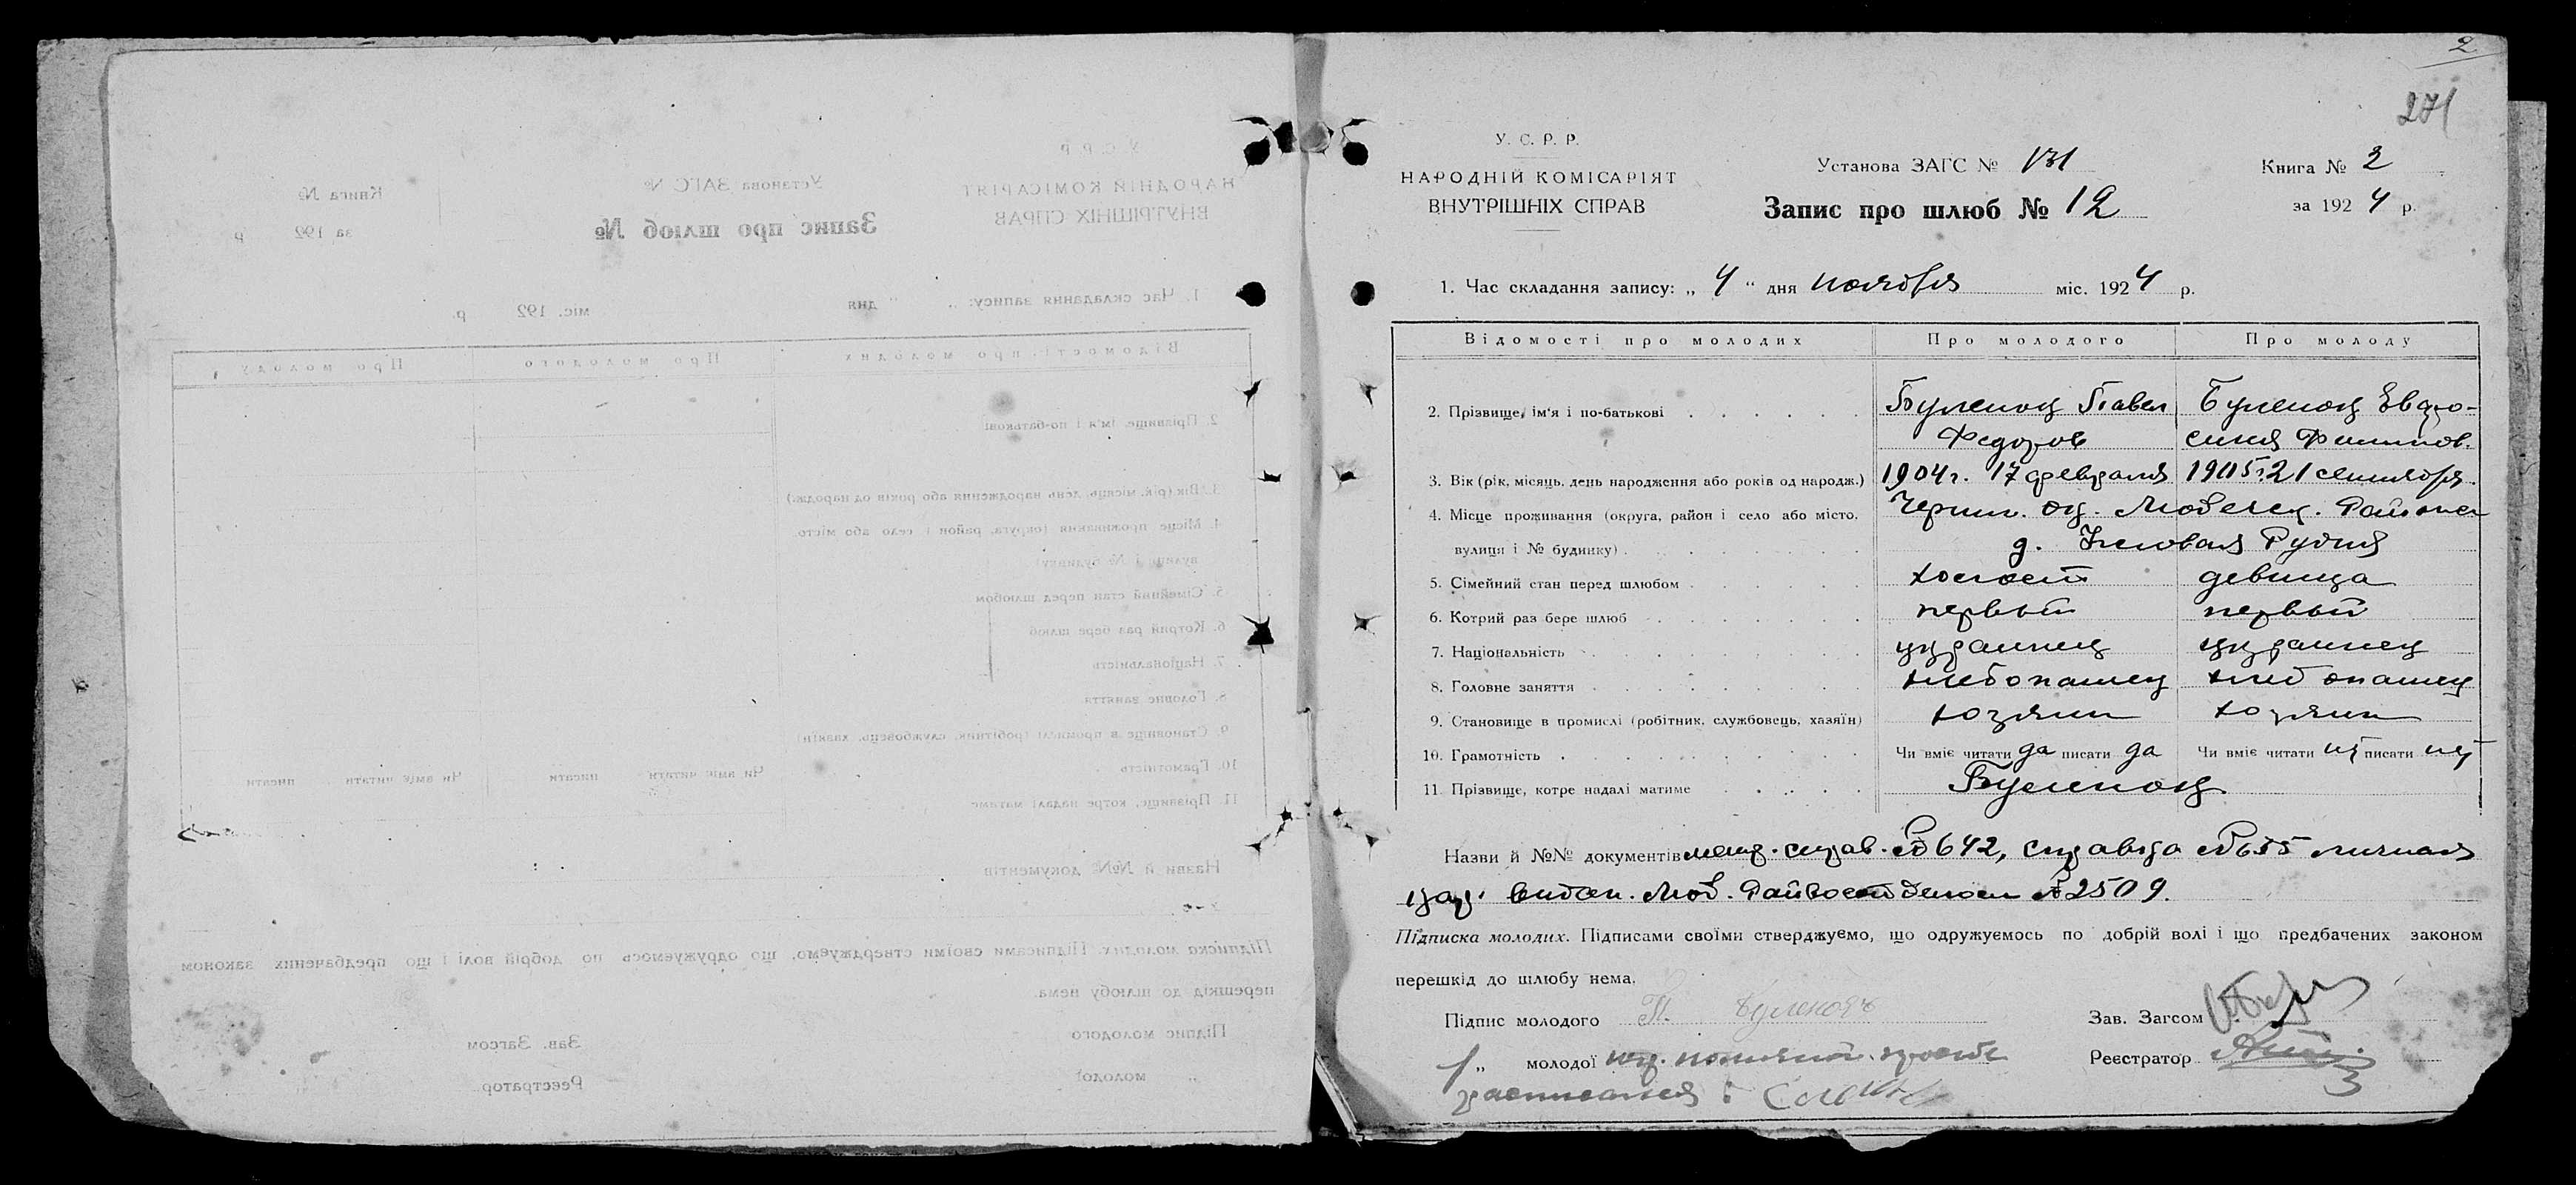 2
271
У. С. Р. Р.
НАРОДНІЙ КОМІСАРІЯТ
ВНУТРІШНІХ СПРАВ
Установа ЗАГС № 131
Запис про шлюб № 12
Книга № 2
за 1924 р.
1. Час складання запису: „ 4 “ дня ноября міс. 1924 р.
Відомості про молодих Про молодого Про молоду
2. Прізвище, ім'я і по-батькові Буленок Павел Буленок Евдо-
Федоров синия Филипов.
3. Вік (рік, місяць, день народження або років од народж.) 1904 г. 17 февраля 1905 г. 21 сентября.
4. Місце проживання (округа, район і село або місто, Черниг. ок. Любечск. Района
вулиця і № будинку) д. Рудня
5. Сімейний стан перед шлюбом холост девица
6. Котрий раз бере шлюб первый первый
7. Національність украинец украинец
8. Головне заняття хлебопашец хлебопашец
9. Становище в промислі (робітник, службовець, хазяїн) хозяин хозяин
10. Грамотність Чи вміє читати да писати да Чи вміє читати нет писати нет
11. Прізвище, котре надалі матиме Буленок
Назви й №№ документів справ. № 642, справка № 655 личная
выдан. Люб. № 2509.
Підписка молодих. Підписами своїми стверджуємо, що одружуємось по добрій волі і що предбачених законом
перешкід до шлюбу нема.
Підпис молодого П. Буленокъ
Зав. Загсом
„ молодої
Реєстратор
расписался